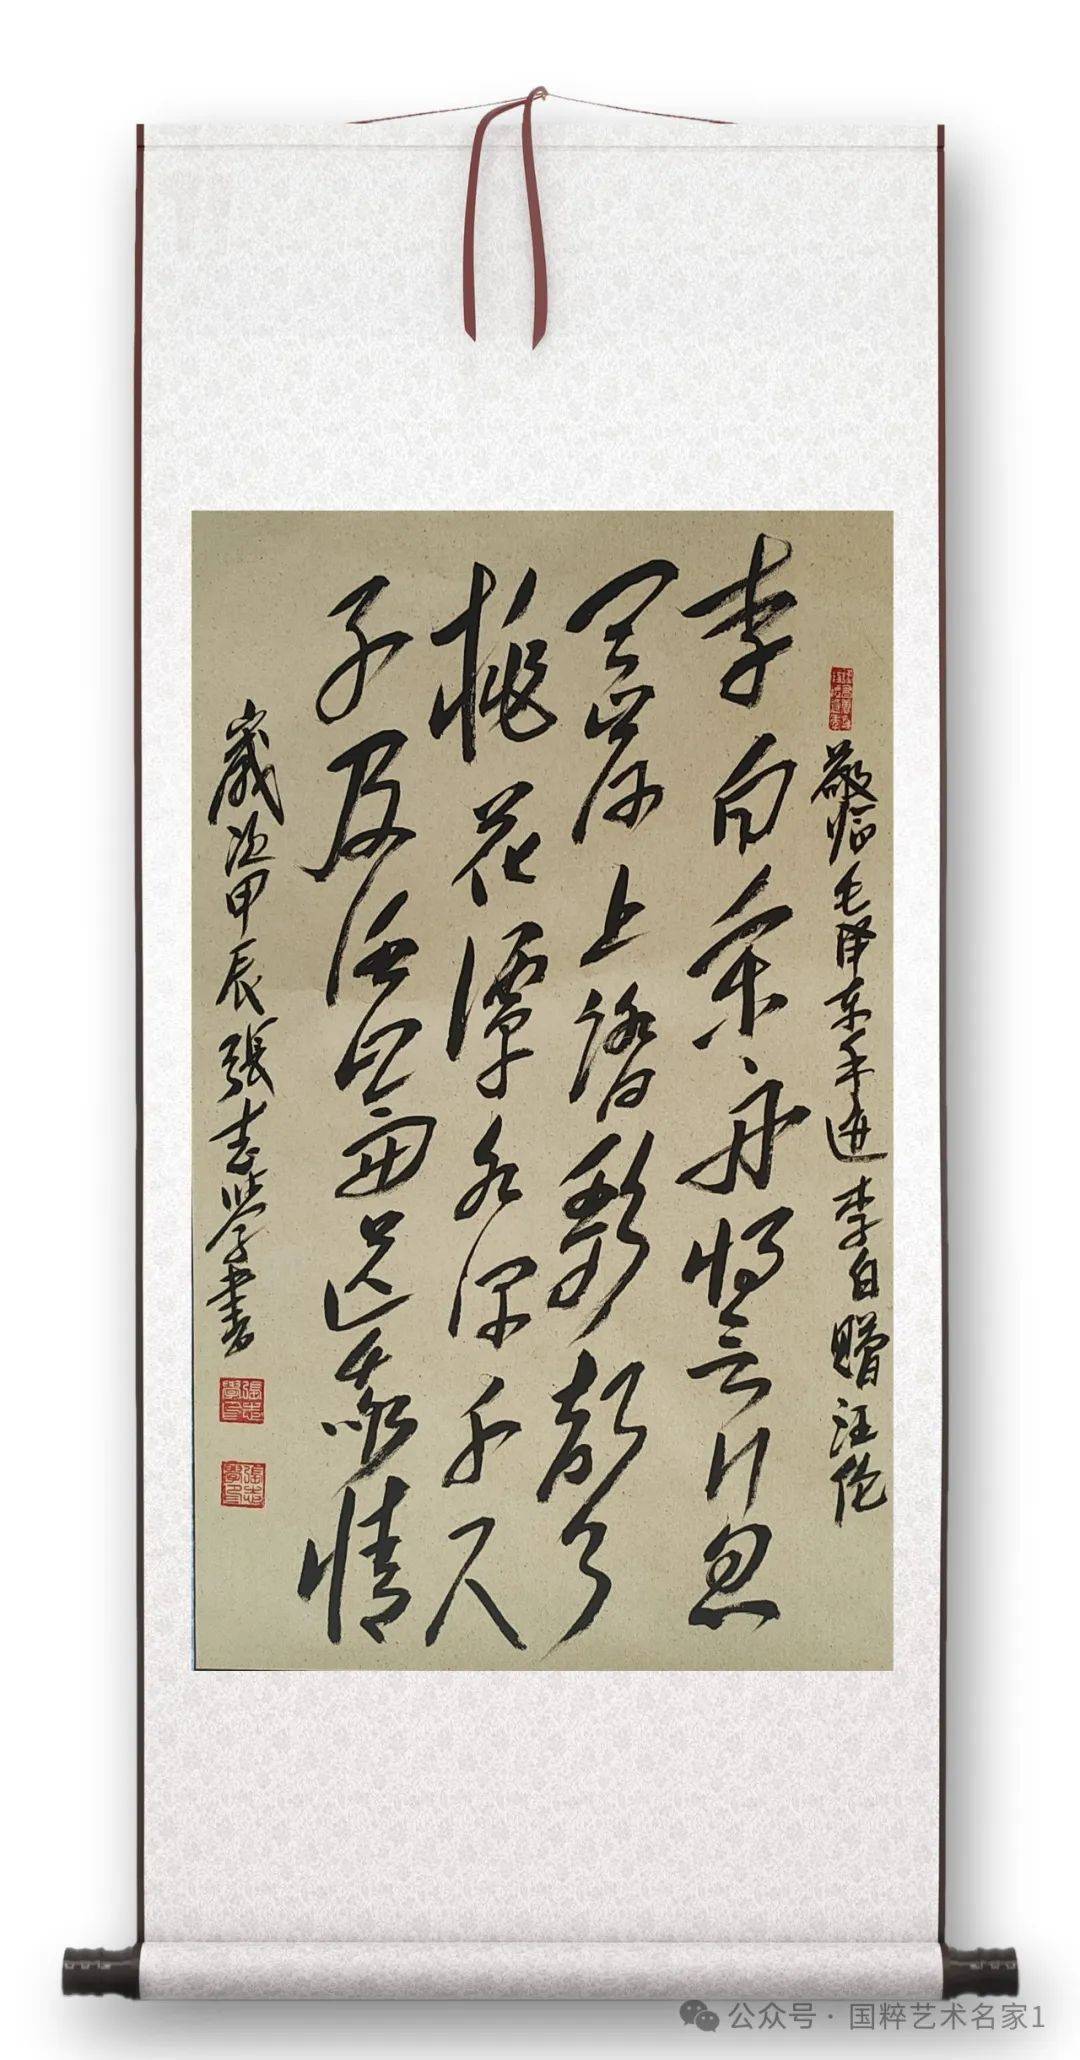 敬临毛泽东手迹 李白赠汪伦
李白乘舟将欲行忽
闻岸上踏歌声
桃花潭水深千尺
不及汪伦送我情
歲次甲辰張志學書
張志學印
張志學印
公众号·国粹艺术名家1